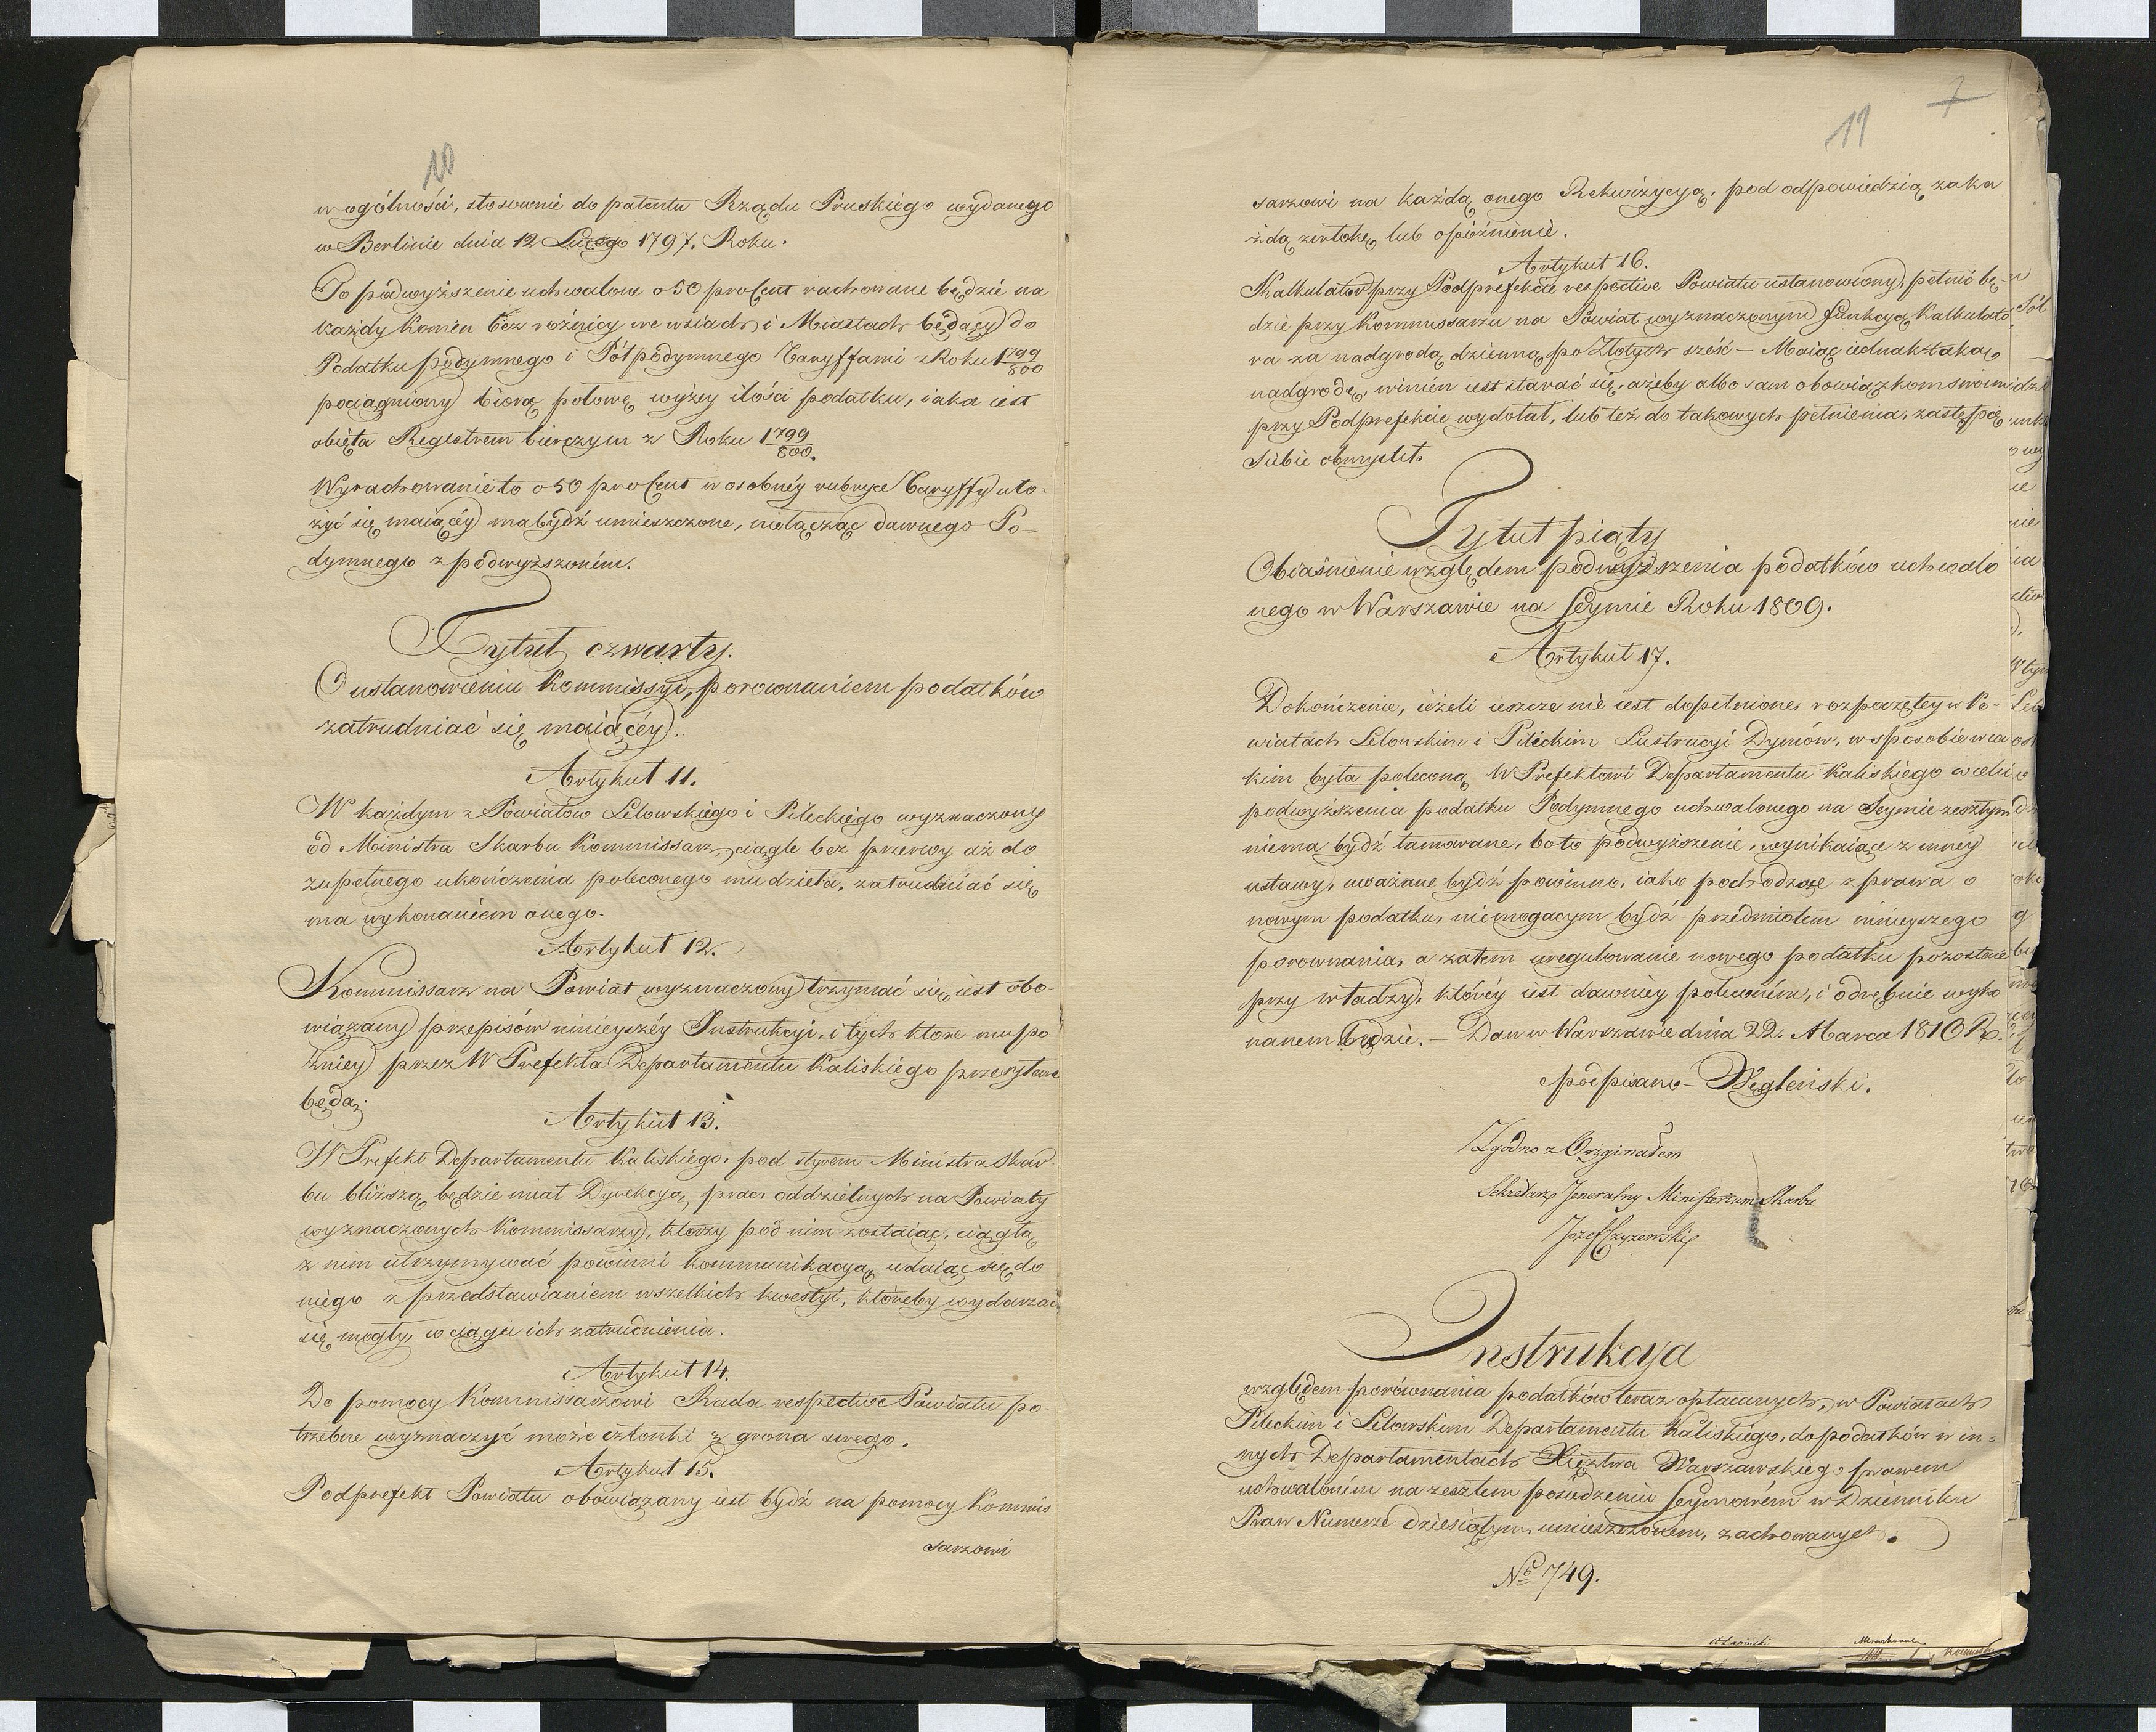 10
w ogólności, stosownie do patentu Rządu Pruskiego wydanego
w Berlinie dnia 12 Lutego 1797. Roku.
To podwyższenie uchwalone o 50 procent rachowane będzie na
każdy Komin bez różnicy we wsiach i Miastach będący do
Podatku podymnego i Półpodymnego Taryffami z Roku 1799/800
pociągniony biorą połowę wyżey ilości podatku, iaka iest
obięta Regestrem bierczym z Roku 1799/800.
Wyrachowanie to o 50 procent w osobnéy rubryce Taryffy uło-
żyć się maiącéy ma bydź umieszczone, nie łącząc dawnego Po-
dymnego z podwyższoném.
Tytuł czwarty.
O ustanowieniu Kommissyi, porownaniem podatków
zatrudniać się maiącéy.
Artykuł 11.
W każdym z Powiatów Lelowskiego i Pileckiego wyznaczony
od Ministra Skarbu Kommissarz, ciągle bez przerwy aż do
zupełnego ukończenia poleconego mu dzieła, zatrudniać się
ma wykonaniem onego.
Artykuł 12.
Kommissarz na Powiat wyznaczony trzymać się iest obo-
wiązany przepisów ninieyszéy Instrukcyi, i tych które mu po
źniey przez W Prefekta Departamentu Kaliskiego przesyłane
będą.
Artykuł 13.
W Prefekt Departamentu Kaliskiego, pod styrem Ministra Skar
bu bliższą będzie miał Dyrekcyą, prac, oddzielnych na Powiaty
wyznaczonych Kommissarzy, którzy pod nim zostaiąc, ciągłą
z nim utrzymywać powinni kommunikacyą, udaiąc się do
niego z przedstawianiem wszelkich kwestyi, któreby wydarzać
się mogły, w ciągu ich zatrudnienia.
Artykuł 14.
Do pomocy Kommissarzowi Rada respective Powiatu po-
trzebne wyznaczyć może członki z grona swego.
Artykuł 15.
Podprefekt Powiatu obowiązany iest bydź na pomocy Kommis
sarzowi
11
7
sarzowi na każdą onego Rekwizycyą, pod odpowiedzią za ka
żdą zwłokę, lub opóźnienie.
Artykuł 16.
Kalkulator przy Podprefekcie respective Powiatu ustanowiony, pełnić bę-
dzie przy Kommissarzu na Powiat wyznaczonym funkcyą Kalkulato
ra za nadgrodą dzienną po Złotych sześć – Maiąc iednak taką
nadgrodę, winien iest starać się, ażeby albo sam obowiązkom swoim
przy Podprefekcie wydołał, lub też do takowych pełnienia, zastępcę
siebie obmyślił.
Tytuł piąty
Obiaśnienie względem podwyższenia podatków uchwalo
nego w Warszawie na Seymie Roku 1809.
Artykuł 17.
Dokończenie, ieżeli ieszcze nie iest dopełnione, rozpoczętey w Po-
wiatach Lelowskim i Pileckim Lustracyi Dymów, w sposobie w ia
kim była poleconą W Prefektowi Departamentu Kaliskiego w celu
podwyższenia podatku Podymnego uchwalonego na Seymie zeszłym
niema bydź tamowane, bo to podwyższenie, wynikaiące z inney
ustawy, uważane bydź powinno, iako pochodzące z prawa o
nowym podatku, niemogącym bydź przedmiotem ninieyszego
porownania, a zatem uregulowanie nowego podatku pozostaie
przy władzy, któréy iest dawniey poleconém, i odrębnie wyko
nanem będzie. – Dan w Warszawie dnia 22. Marca 1810 R.
podpisano – Węgleński.
Zgodno z Oryginałem
Sekretarz Jeneralny Ministerium Skarbu
Józef Czyżewski
Instrukcya
względem porównania podatków teraz opłacanych, w Powiatach
Pileckim i Lelowskim Departamentu Kaliskiego, do podatków w in=
nych Departamentach Xięztwa Warszawskiego prawem
uchwaloném na zeszłem posiedzeniu Seymowém w Dzienniku
Praw Numerze dziesiątym, umieszczonem, zachowanych.
No 749.